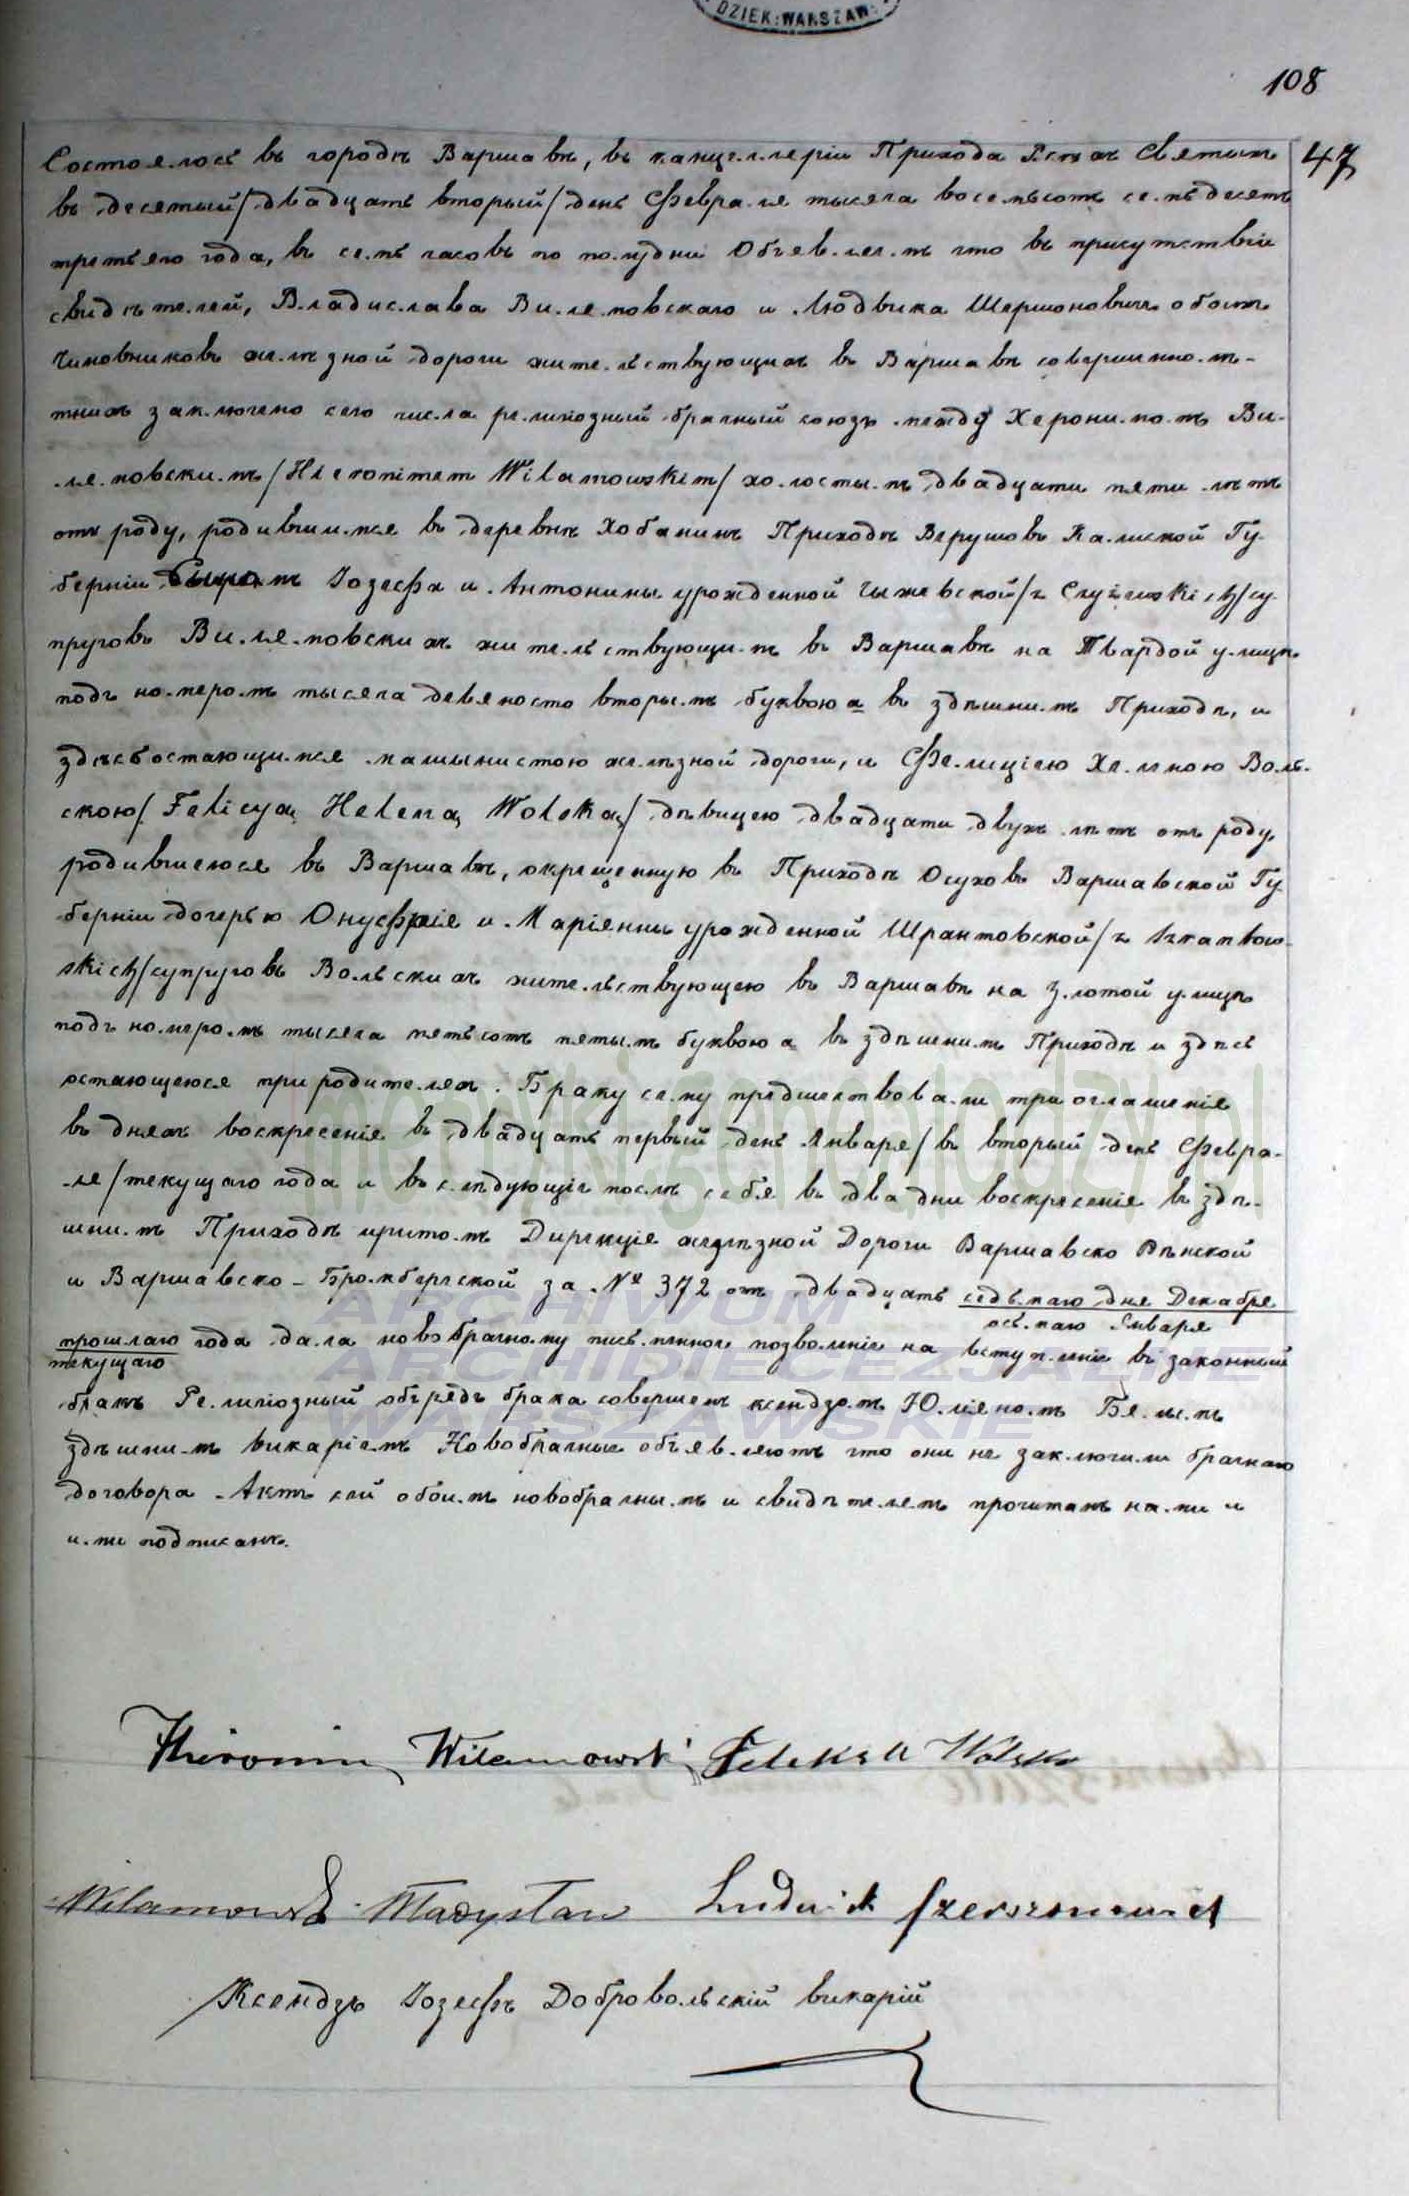 DZIEK: WARSZAW:
108
47
Состоялось въ городѣ Варшавѣ, въ канцелляріи Прихода Всѣхъ Святыхъ
въ десятый/двадцать вторый/день Февраля тысяча восемьсотъ семьдесятъ
третьяго года, въ семь часовъ по полудни Объявляемъ что въ присутствіи
свидѣтелей, Владислава Вилямовскаго и Людвика Шершоновича обоихъ
чиновниковъ желѣзной дороги жительствующихъ въ Варшавѣ совершеннолѣ-
тнихъ заключено сего числа религіозный брачный союзъ между Херонимомъ Ви-
лямовскимъ/Hieronimem Wilamowskim/холостымъ двадцати пяти лѣтъ
отъ роду, родившимся въ деревнѣ Хобанинѣ Приходѣ Верушовъ Калиской Гу-
берніи Сыномъ Іозефа и Антонины урожденной Чижевской/z Czyżewskich/су-
пруговъ Вилямовскихъ жительствующимъ въ Варшавѣ на Твардой улицѣ
подъ номеромъ тысяча девяносто вторымъ буквою а въ здѣшнимъ Приходѣ, и
здѣсь остающимся машинистою желѣзной дороги, и Фелициею Хеленою Воль-
скою/Felicyą Heleną Wolską/дѣвицею двадцати двухъ лѣтъ отъ роду,
родившеюся въ Варшавѣ, окрещенную въ Приходѣ Осуховъ Варшавской Гу-
берніи дочерью Онуфрія и Маріянны урожденной Шрантовской/z Szrantow-
skich/супруговъ Вольскихъ жительствующею въ Варшавѣ на Злотой улицѣ
подъ номеромъ тысяча пятьсотъ пятымъ буквою а въ здѣшнимъ Приходѣ и здѣсь
остающеюся при родителяхъ. Браку сему предшествовали три оглашенія
въ дняхъ воскресенія въ двадцать первый день Января/въ вторый день Февра-
ля/текущаго года и въ слѣдующіе послѣ себя въ два дни воскресенія въ здѣ-
шнимъ Приходѣ притомъ Дирекція желѣзной Дороги Варшавско Вѣнской
и Варшавско-Бромбергской за № 372 отъ двадцать седьмаго дня Декабря
осьмаго Января
прошлаго года дала новобрачному письменное позволеніе на вступленіе въ законный
текущаго
бракъ Религіозный обрядъ брака совершенъ ксендзомъ Юліяномъ Бялемъ
здѣшнимъ викаріемъ Новобрачные объявляютъ что они не заключили брачнаго
договора Актъ сей обоимъ новобрачнымъ и свидѣтелемъ прочитанъ нами и
ими подписанъ.
Hieronim Wilamowski Felicya Wolska
Wilamowski Władysław Ludwik Szerszonowicz
Ксендзъ Іозефъ Добровольскій викарій
metryki.genealodzy.pl
ARCHIWUM
ARCHIDIECEZJALNE
WARSZAWSKIE